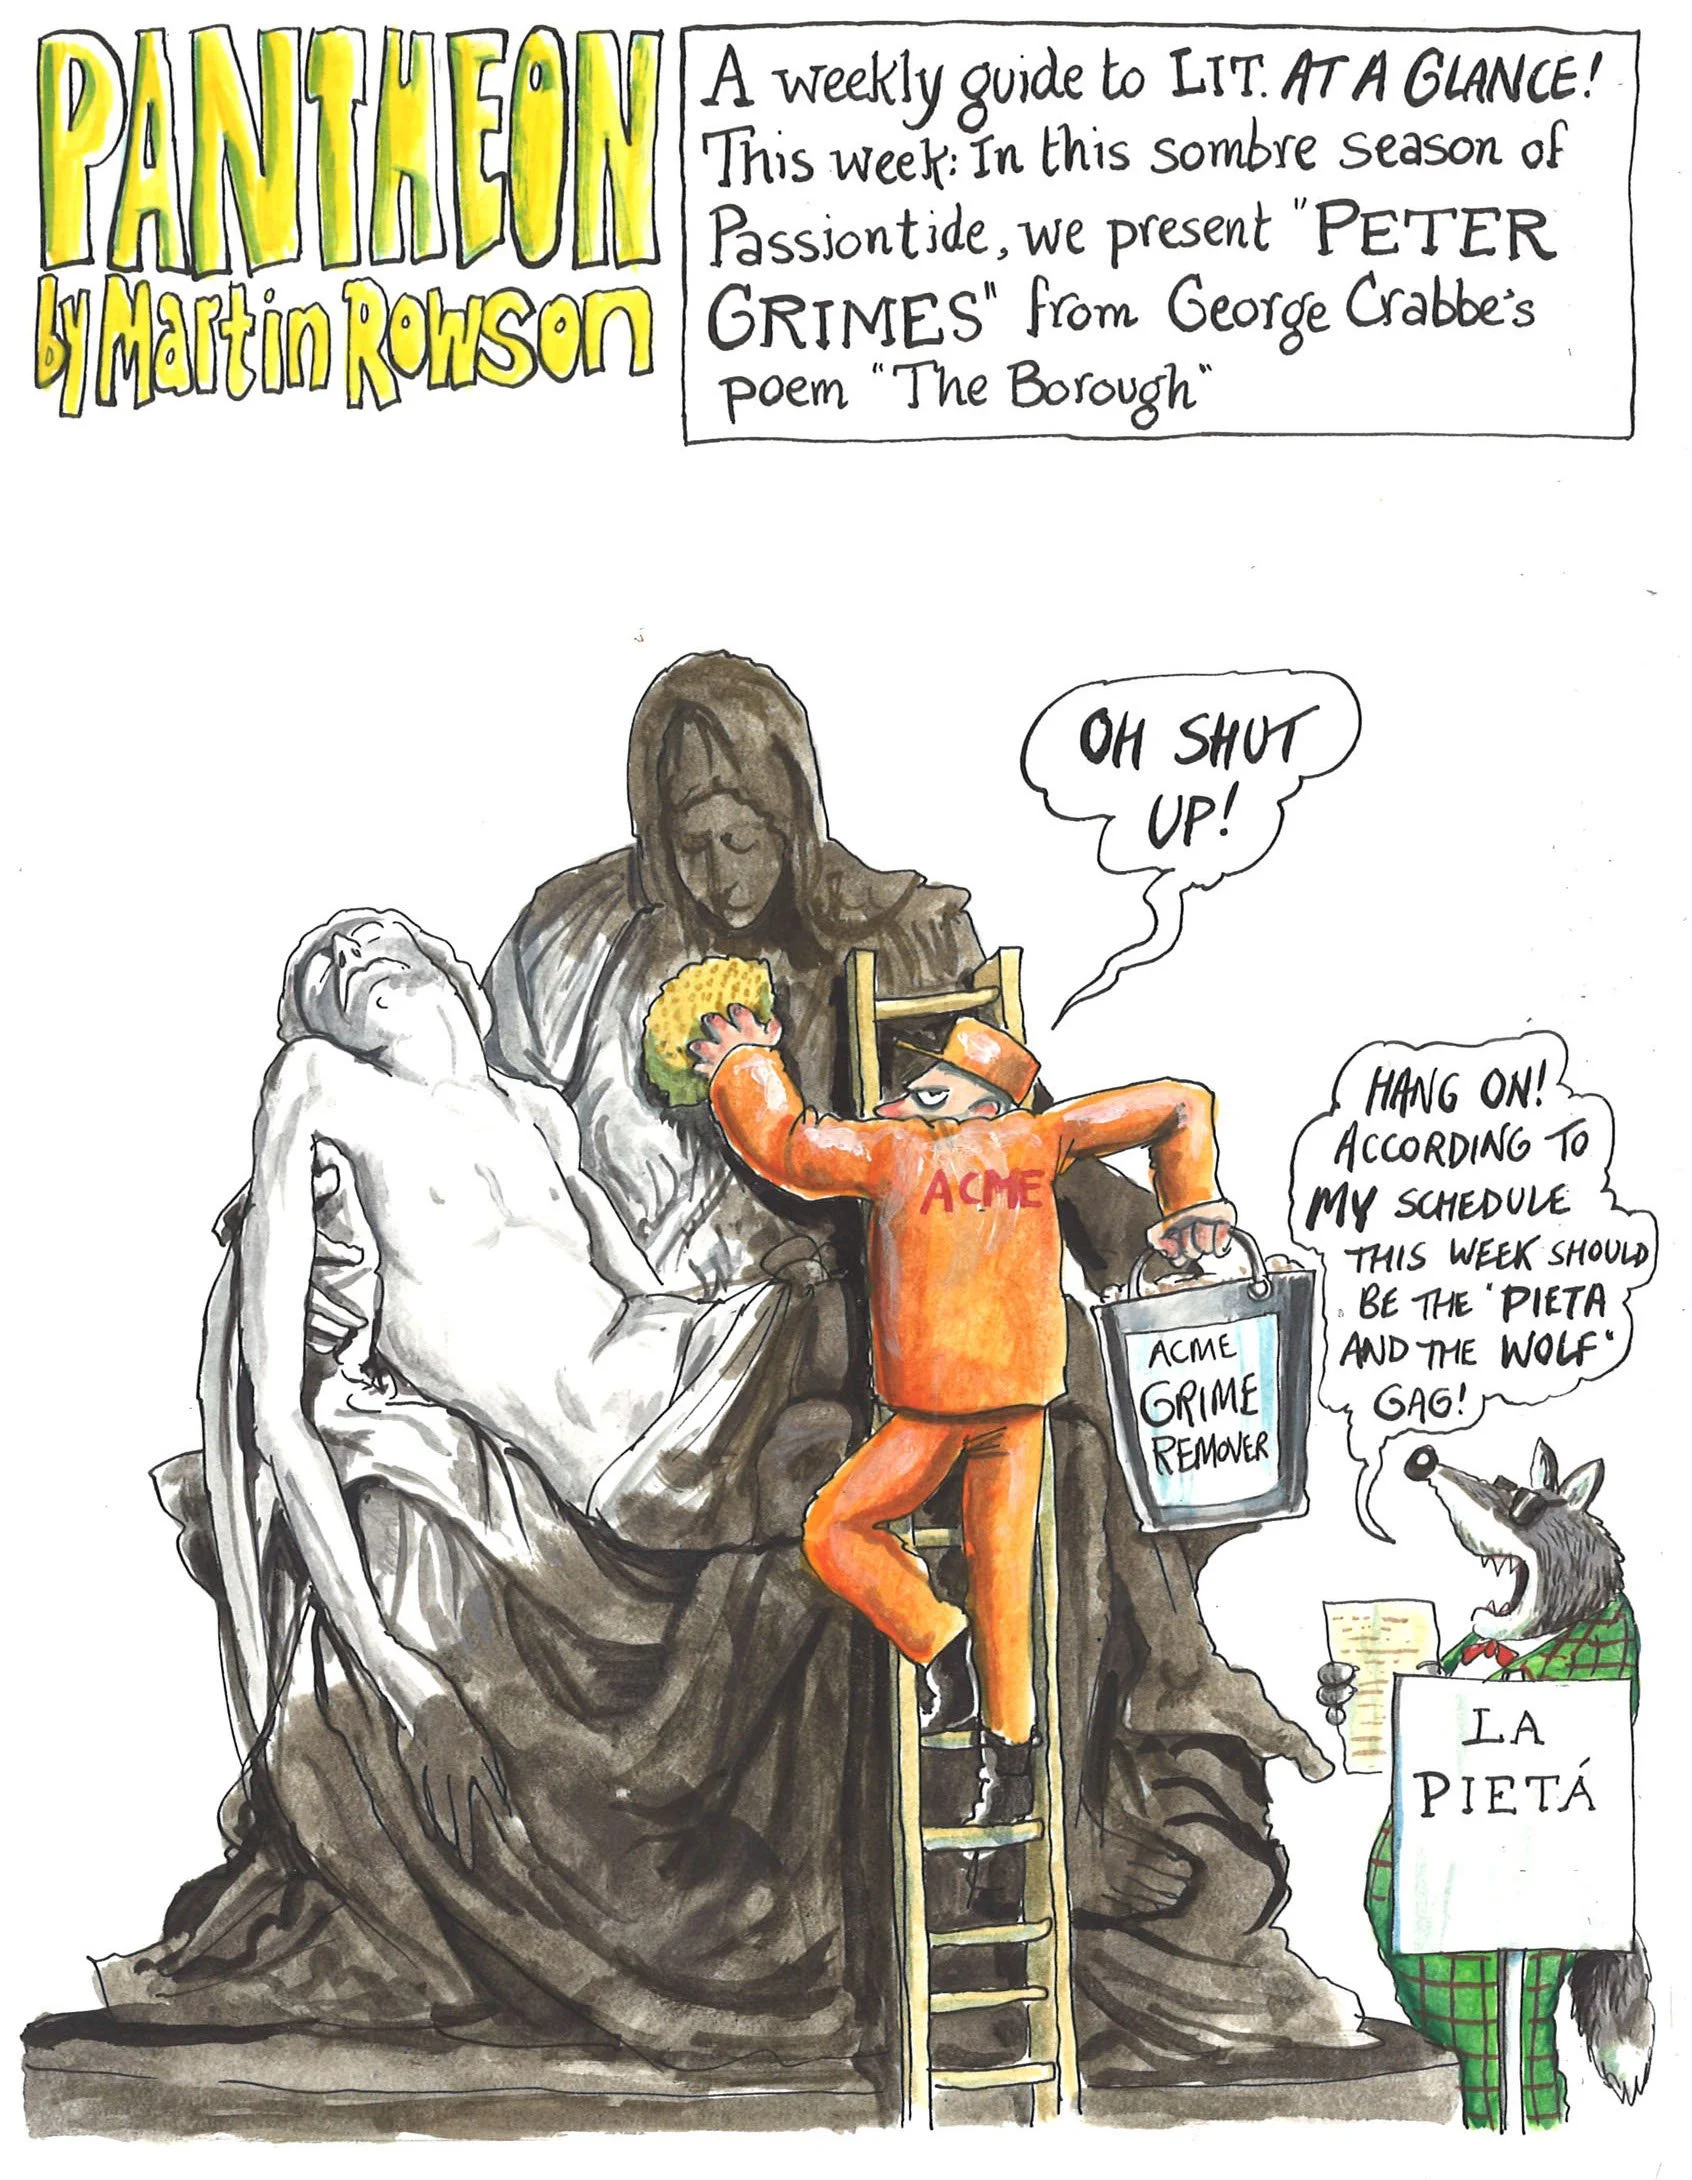 PANTHEON
by Martin Rowson
A weekly guide to LIT. AT A GLANCE!
This week: In this sombre season of
Passiontide, we present "PETER
GRIMES" from George Crabbe's
poem "The Borough"
OH SHUT
UP!
HANG ON!
ACCORDING TO
MY SCHEDULE
THIS WEEK SHOULD
BE THE "PIETA
AND THE WOLF"
GAG!
ACME
ACME
GRIME
REMOVER
LA
PIETÁ